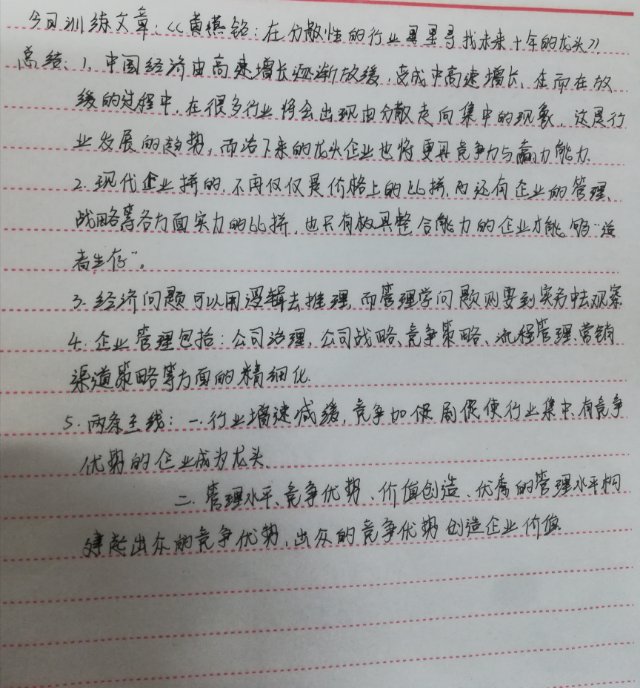 今日训练文章:《黄祺铭:在分散性的行业里寻找未来十年的龙头》
总结:1.中国经济由高速增长逐渐放缓,变成中高速增长,在而在放
缓的过程中,在很多行业将会出现由分散走向集中的现象,这是行
业发展的趋势,而活下来的龙头企业也将更具竞争力与赢力能力.
2.现代企业拼的,不再仅仅是价格上的比拼,而还有企业的管理、
战略等各方面实力的比拼,也只有极具整合能力的企业才能够“适
者生存”。
3.经济问题可以用逻辑去推理,而管理学问题则要到实务中去观察
4.企业管理包括:公司治理、公司战略、竞争策略、流程管理、营销
渠道策略等方面的精细化.
5.两条主线:一.行业增速减缓,竞争加促使行业集中,有竞争
优势的企业成为龙头、
二.管理水平、竞争优势、价值创造、优秀的管理水平构
建起出众的竞争优势,出众的竞争优势创造企业价值.